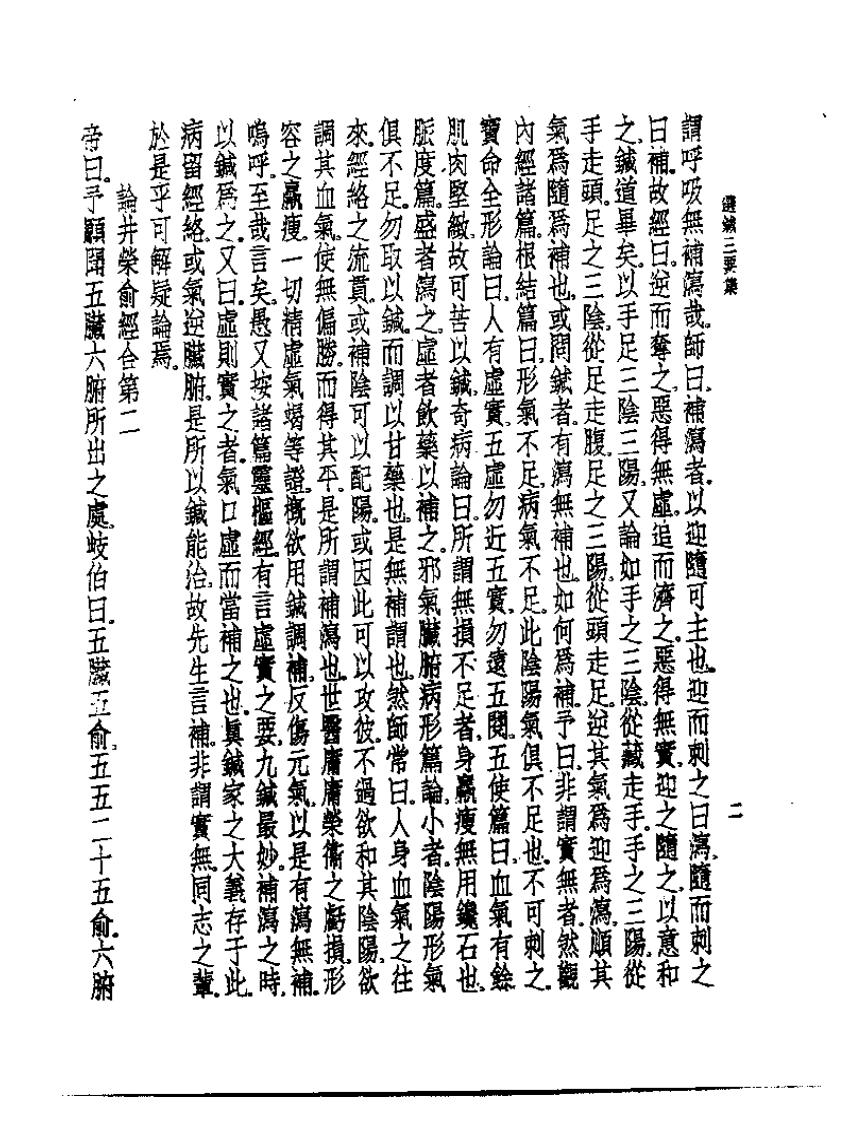 選鍼三要集
二
謂呼吸無補瀉哉。師曰、補瀉者、以迎隨可主也。迎而刺之曰瀉、隨而刺之
曰補。故經曰、逆而奪之、惡得無虛、追而濟之、惡得無實、迎之隨之、以意和
之、鍼道畢矣。以手足三陰三陽、又論如手之三陰、從藏走手、手之三陽、從
手走頭、足之三陰、從足走腹、足之三陽、從頭走足。逆其氣爲迎爲瀉、順其
氣爲隨爲補也。或問鍼者、有瀉無補也、如何爲補。予曰、非謂實無者、然觀
內經諸篇、根結篇曰、形氣不足、病氣不足、此陰陽氣俱不足也、不可刺之。
寶命全形論曰、人有虛實、五虛勿近、五實勿遠、五閱五使篇曰、血氣有餘、
肌肉堅緻、故可苦以鍼、奇病論曰、所謂無損不足者、身羸瘦無用鑱石也、
脈度篇、盛者瀉之、虛者飮藥以補之、邪氣臟腑病形篇論、小者、陰陽形氣
俱不足、勿取以鍼、而調以甘藥也、是無補謂也。然師常曰、人身血氣之往
來、經絡之流貫、或補陰可以配陽、或因此可以攻彼、不過欲和其陰陽、欲
調其血氣、使無偏勝、而得其平、是所謂補瀉也。世醫庸庸榮衞之虧損、形
容之羸瘦、一切精虛氣竭等證、槪欲用鍼調補、反傷元氣、以是有瀉無補。
嗚呼、至哉言矣。愚又按諸篇靈樞經、有言虛實之要、九鍼最妙、補瀉之時、
以鍼爲之。又曰、虛則實之者、氣口虛而當補之也、眞鍼家之大義存于此。
病留經絡、或氣逆臟腑、是所以鍼能治、故先生言補、非謂實無、同志之輩、
於是乎可解疑論焉。
論井榮俞經合第二
帝曰。予願聞五臟六腑所出之處、岐伯曰。五臟五俞、五五二十五俞。六腑